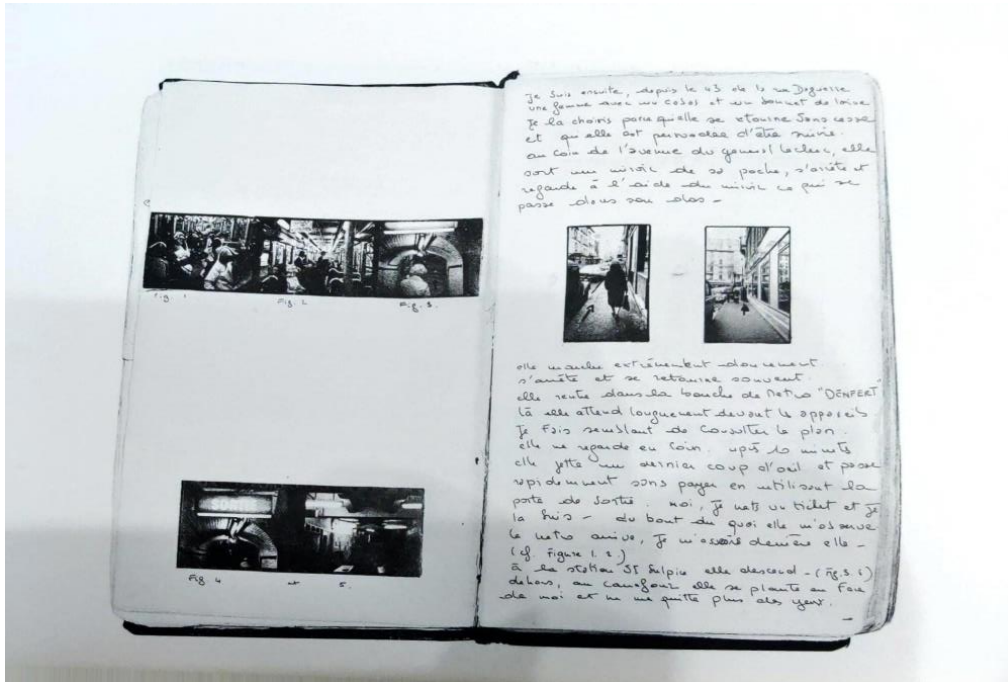 Fig. 1
Fig. 2.
Fig. 3.
Fig 4 et 5.
Je suis ensuite, depuis le 43 de la rue Daguerre
une femme avec un cabas et un bonnet de laine
Je la choisis parce qu'elle se retourne sans cesse
et qu'elle est persuadée d'être suivie.
au coin de l'avenue du general Leclerc, elle
sort un miroir de sa poche, s'arrête et
regarde à l'aide du miroir ce qui se
passe dans son dos -
elle marche extrêmement doucement.
s'arrête et se retourne souvent.
elle rentre dans la bouche de Metro "DENFERT"
là elle attend longuement devant les appareils
Je fais semblant de consulter le plan.
elle me regarde en coin. après 10 minutes
elle jette un dernier coup d'oeil et passe
rapidement sans payer en utilisant la
porte de sortie. moi, je mets un ticket et je
la suis - du bout du quai elle m'observe
le metro arrive, Je m'assois derrière elle -
(cf. Figure 1. 2.)
à la station St Sulpice elle descend - (Fig. 3.
dehors, au carrefour elle se plante en face
de moi et ne me quitte plus des yeux.
SORTIE